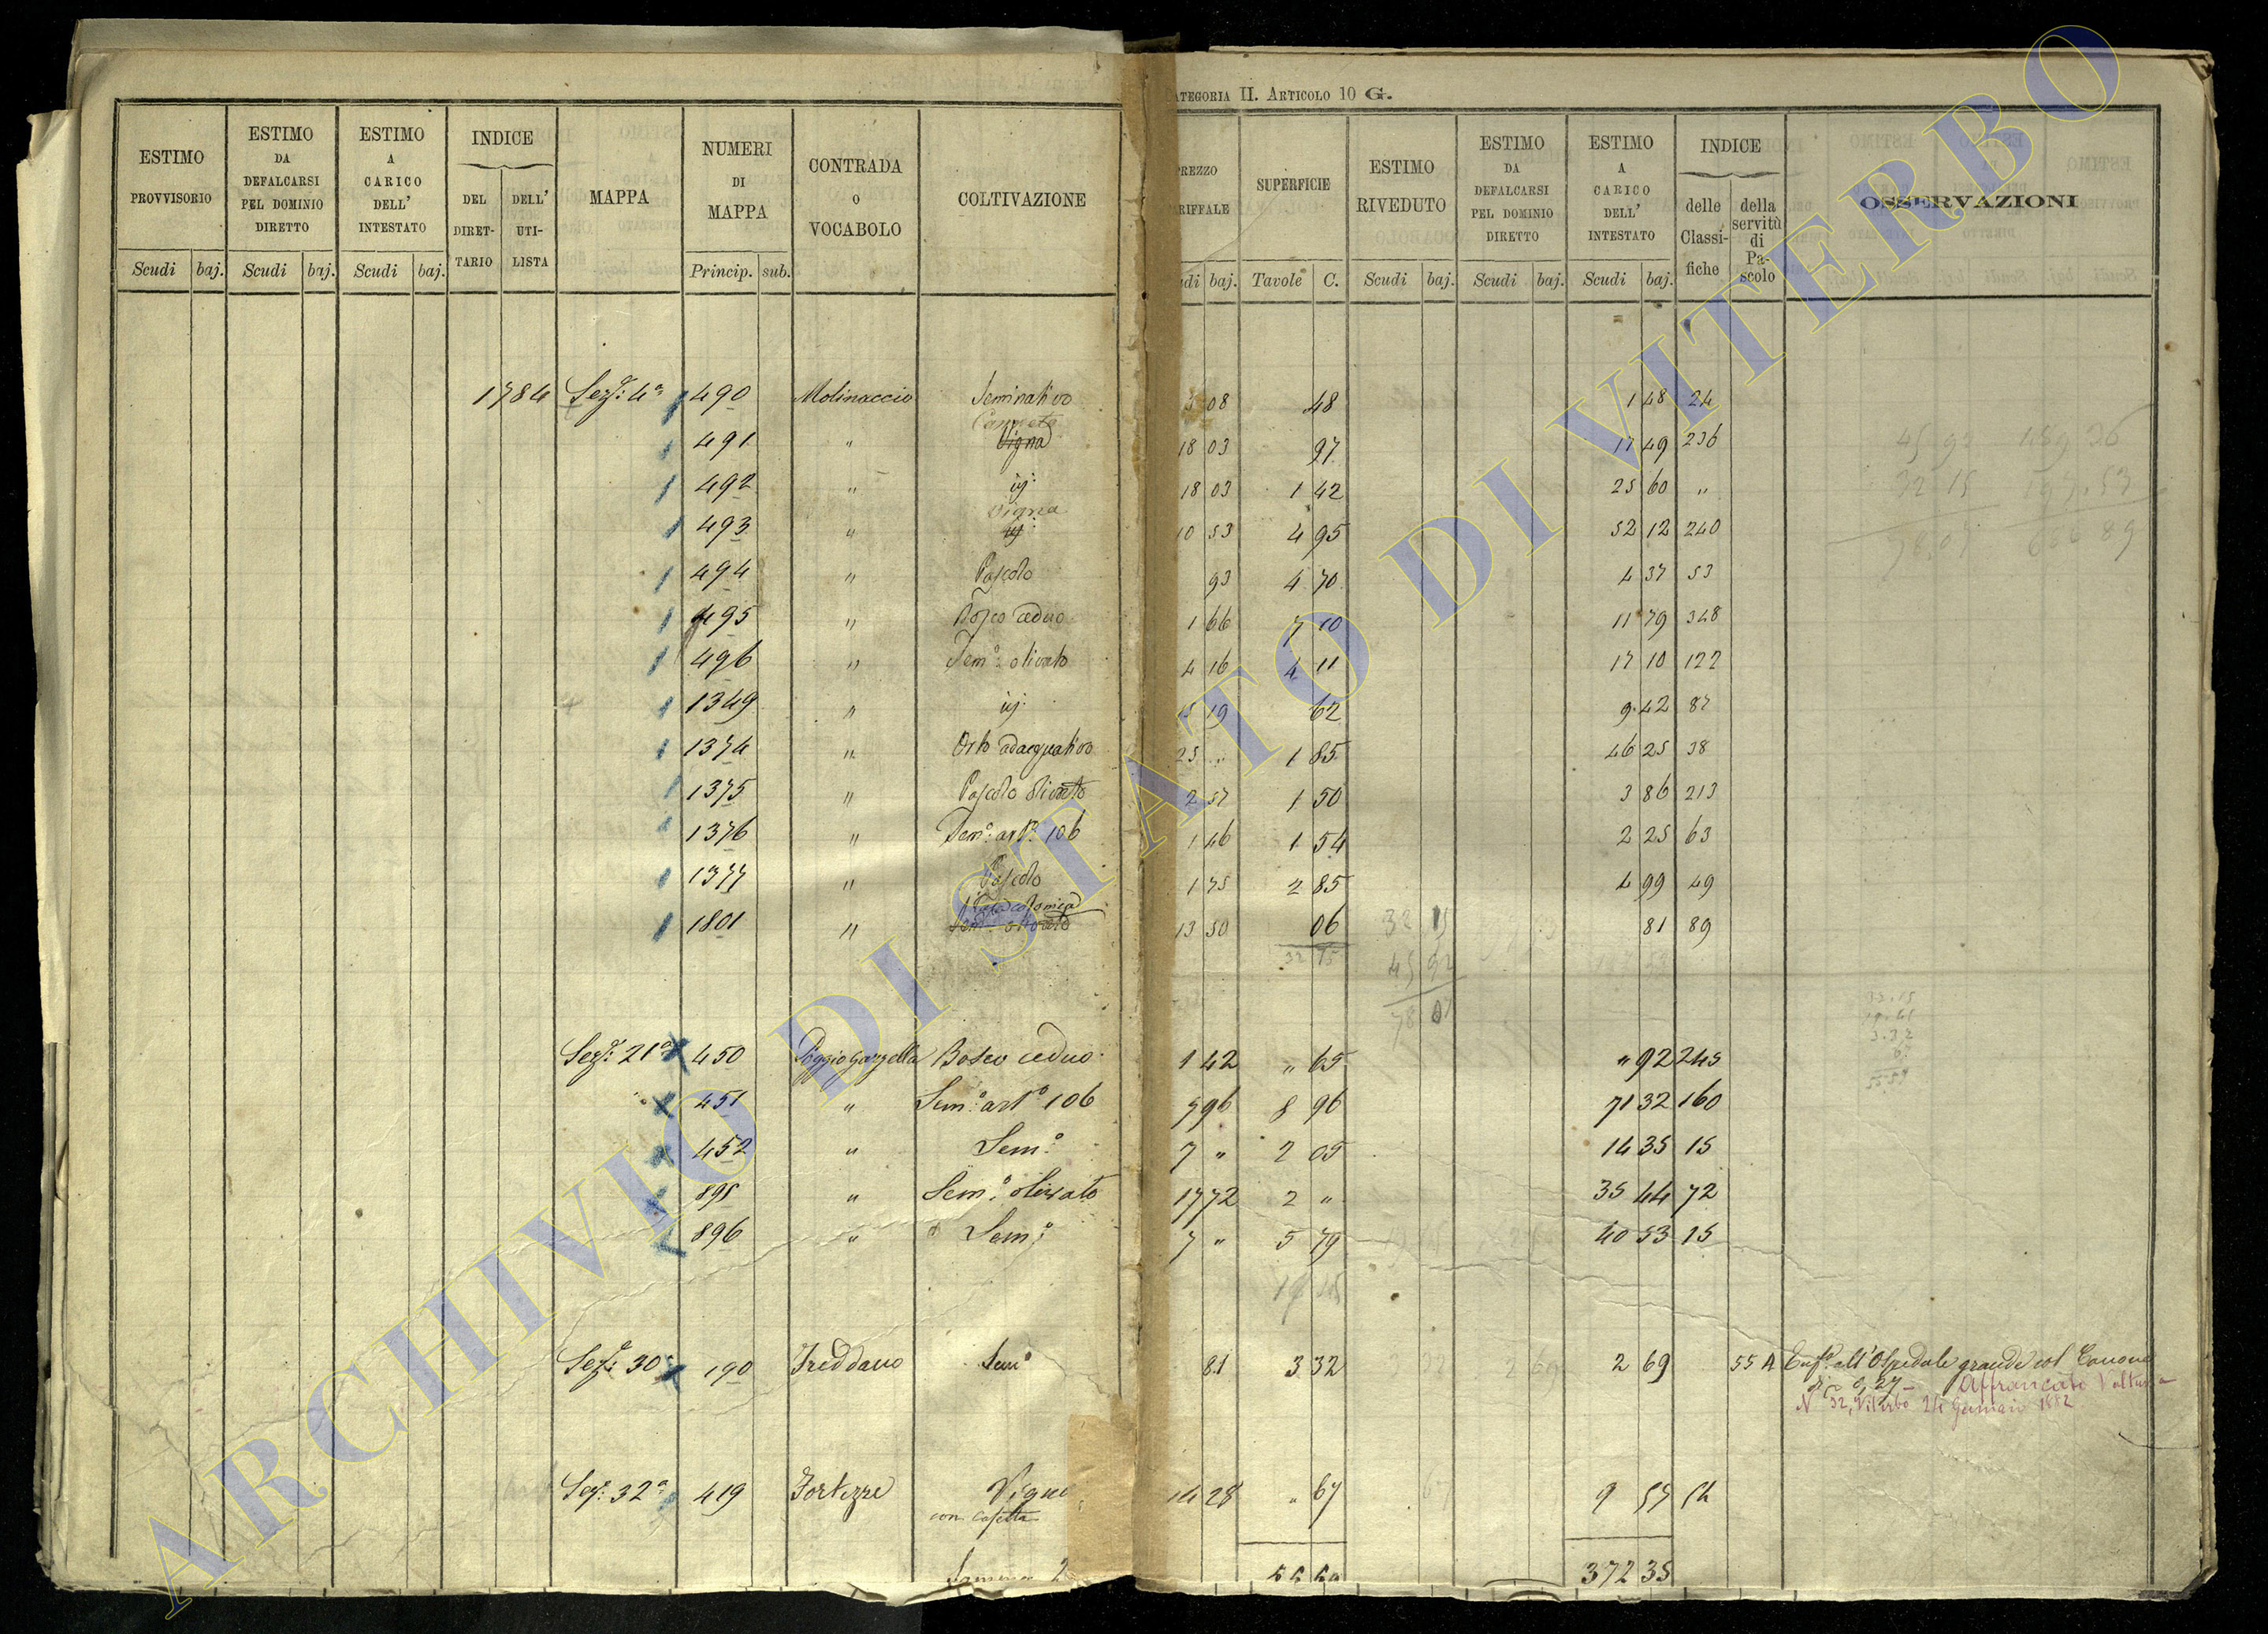 CATEGORIA II. ARTICOLO 10 G.
ESTIMO PROVVISORIO Scudi baj.
ESTIMO DA DEFALCARSI PEL DOMINIO DIRETTO Scudi baj.
ESTIMO A CARICO DELL' INTESTATO Scudi baj.
INDICE DEL DIRET-TARIO DELL' UTI-LISTA
MAPPA
NUMERI DI MAPPA Princip. sub.
CONTRADA O VOCABOLO
COLTIVAZIONE
PREZZO TARIFFALE Scudi baj.
SUPERFICIE Tavole C.
ESTIMO RIVEDUTO Scudi baj.
ESTIMO DA DEFALCARSI PEL DOMINIO DIRETTO Scudi baj.
ESTIMO A CARICO DELL' INTESTATO Scudi baj.
INDICE delle Classi-fiche della servitù di Pa-scolo
OSSERVAZIONI
1784 Seze: 4a 490 Molinaccio Seminativo 08 48 1 48 24
Canneto
491 " Vigna 18 03 97 17 49 236
492 " iij: 18 03 1 42 25 60 "
Vigna
493 " iij: 10 53 4 95 52 12 240
494 " Pascolo 93 4 70 4 37 53
495 " Bosco ceduo 1 66 7 10 11 79 348
496 " Semo: olivato 4 16 4 11 17 10 122
1349 " iij: 15 19 62 9.42 87
1374 " Orto adacquativo 25 .. 1 85 46 25 38
1375 " Pascolo olivato 2 57 1 50 3 86 213
1376 " Semo: arto: 106 1 46 1 54 2 25 63
1377 " Pascolo 1 75 2 85 4 99 49
Casa colonica
1801 " Semo: olivato 13 50 06 81 89
32 15
32 15
45 92
78 07
Seze: 21a 450 Poggio Garzella Bosco ceduo 1 42 " 65 " 92 245
451 " Semo: arto 106 7 96 8 96 71 32 160
452 " Semo: 7 " 2 05 14 35 15
895 " Semo: olivato 17 72 2 " 35 44 72
896 " Semo: 7 " 5 79 40 53 15
Seze: 30 190 Freddano Semo 81 3 32 2 69 55 A Enfa: all'Ospedale grande col Canone
di 0,27 Affrancato Voltura
N 32, Viterbo 24 Gennaio 1882
Seze: 32a 419 Fortezze Vigna 14 28 " 67 9 57 54
con Casetta
Somma 372 35
ARCHIVIO DI STATO DI VITERBO